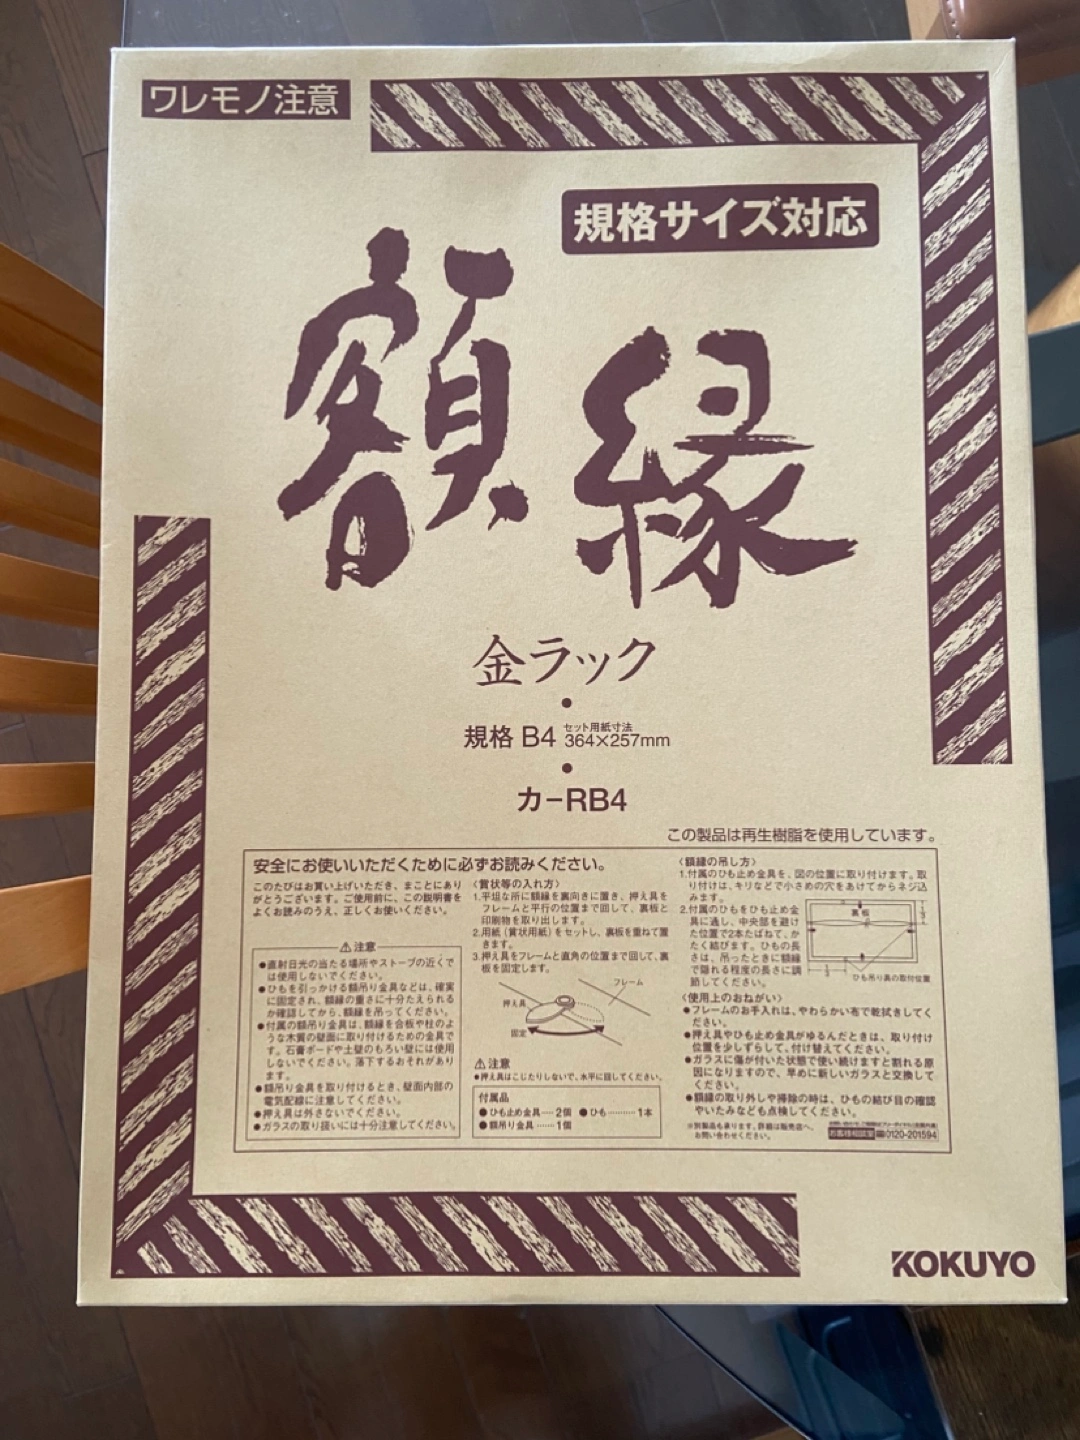 ワレモノ注意
規格サイズ対応
額縁
金ラック
・
規格 B4 セット用紙寸法
364×257mm
・
カ-RB4
この製品は再生樹脂を使用しています。
安全にお使いいただくために必ずお読みください。
このたびはお買い上げいただき、まことにあり
がとうございます。ご使用前に、この説明書を
よくお読みのうえ、正しくお使いください。
⚠注意
●直射日光の当たる場所やストーブの近くで
は使用しないでください。
●ひもを引っかける額吊り金具などは、確実
に固定され、額縁の重さに十分たえられる
か確認してから、額縁を吊ってください。
●付属の額吊り金具は、額縁を合板や柱のよ
うな木質の壁面に取り付けるための金具で
す。石膏ボードや土壁のもろい壁には使用
しないでください。落下するおそれがあり
ます。
●額吊り金具を取り付けるとき、壁面内部の
電気配線に注意してください。
●押え具は外さないでください。
●ガラスの取り扱いには十分注意してください。
〈賞状等の入れ方〉
1.平坦な所に額縁を裏向きに置き、押え具を
フレームと平行の位置まで回して、裏板と
印刷物を取り出します。
2.用紙(賞状用紙)をセットし、裏板を重ねて置
きます。
3.押え具をフレームと直角の位置まで回して、裏
板を固定します。
フレーム
押え具
固定
⚠注意
●押え具はこじたりしないで、水平に回してください。
付属品
●ひも止め金具……2個 ●ひも………1本
●額吊り金具……1個
〈額縁の吊し方〉
1.付属のひも止め金具を、図の位置に取り付けます。取
り付けは、キリなどで小さめの穴をあけてからネジ込
みます。
2.付属のひもをひも止め金
具に通し、中央部を避け
た位置で2本たばねて、か
たく結びます。ひもの長
さは、吊ったときに額縁
で隠れる程度の長さに調
節してください。
裏板
1/3
1/3
ひも吊り具の取付位置
〈使用上のおねがい〉
●フレームのお手入れは、やわらかい布で乾拭きしてく
ださい。
●押え具やひも止め金具がゆるんだときは、取り付け
位置を少しずらして、付け替えてください。
●ガラスに傷が付いた状態で使い続けますと割れる原
因になりますので、早めに新しいガラスと交換して
ください。
●額縁の取り外しや掃除の時は、ひもの結び目の確認
やいたみなども点検してください。
※別製品も承ります。詳細は販売店へ、
お問い合わせください。
お客様相談室 0120-201594
KOKUYO